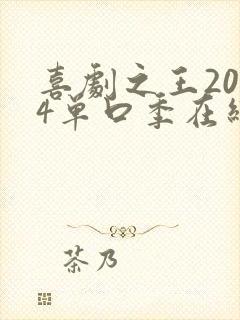 喜劇之王20
4單口季在線
茶乃